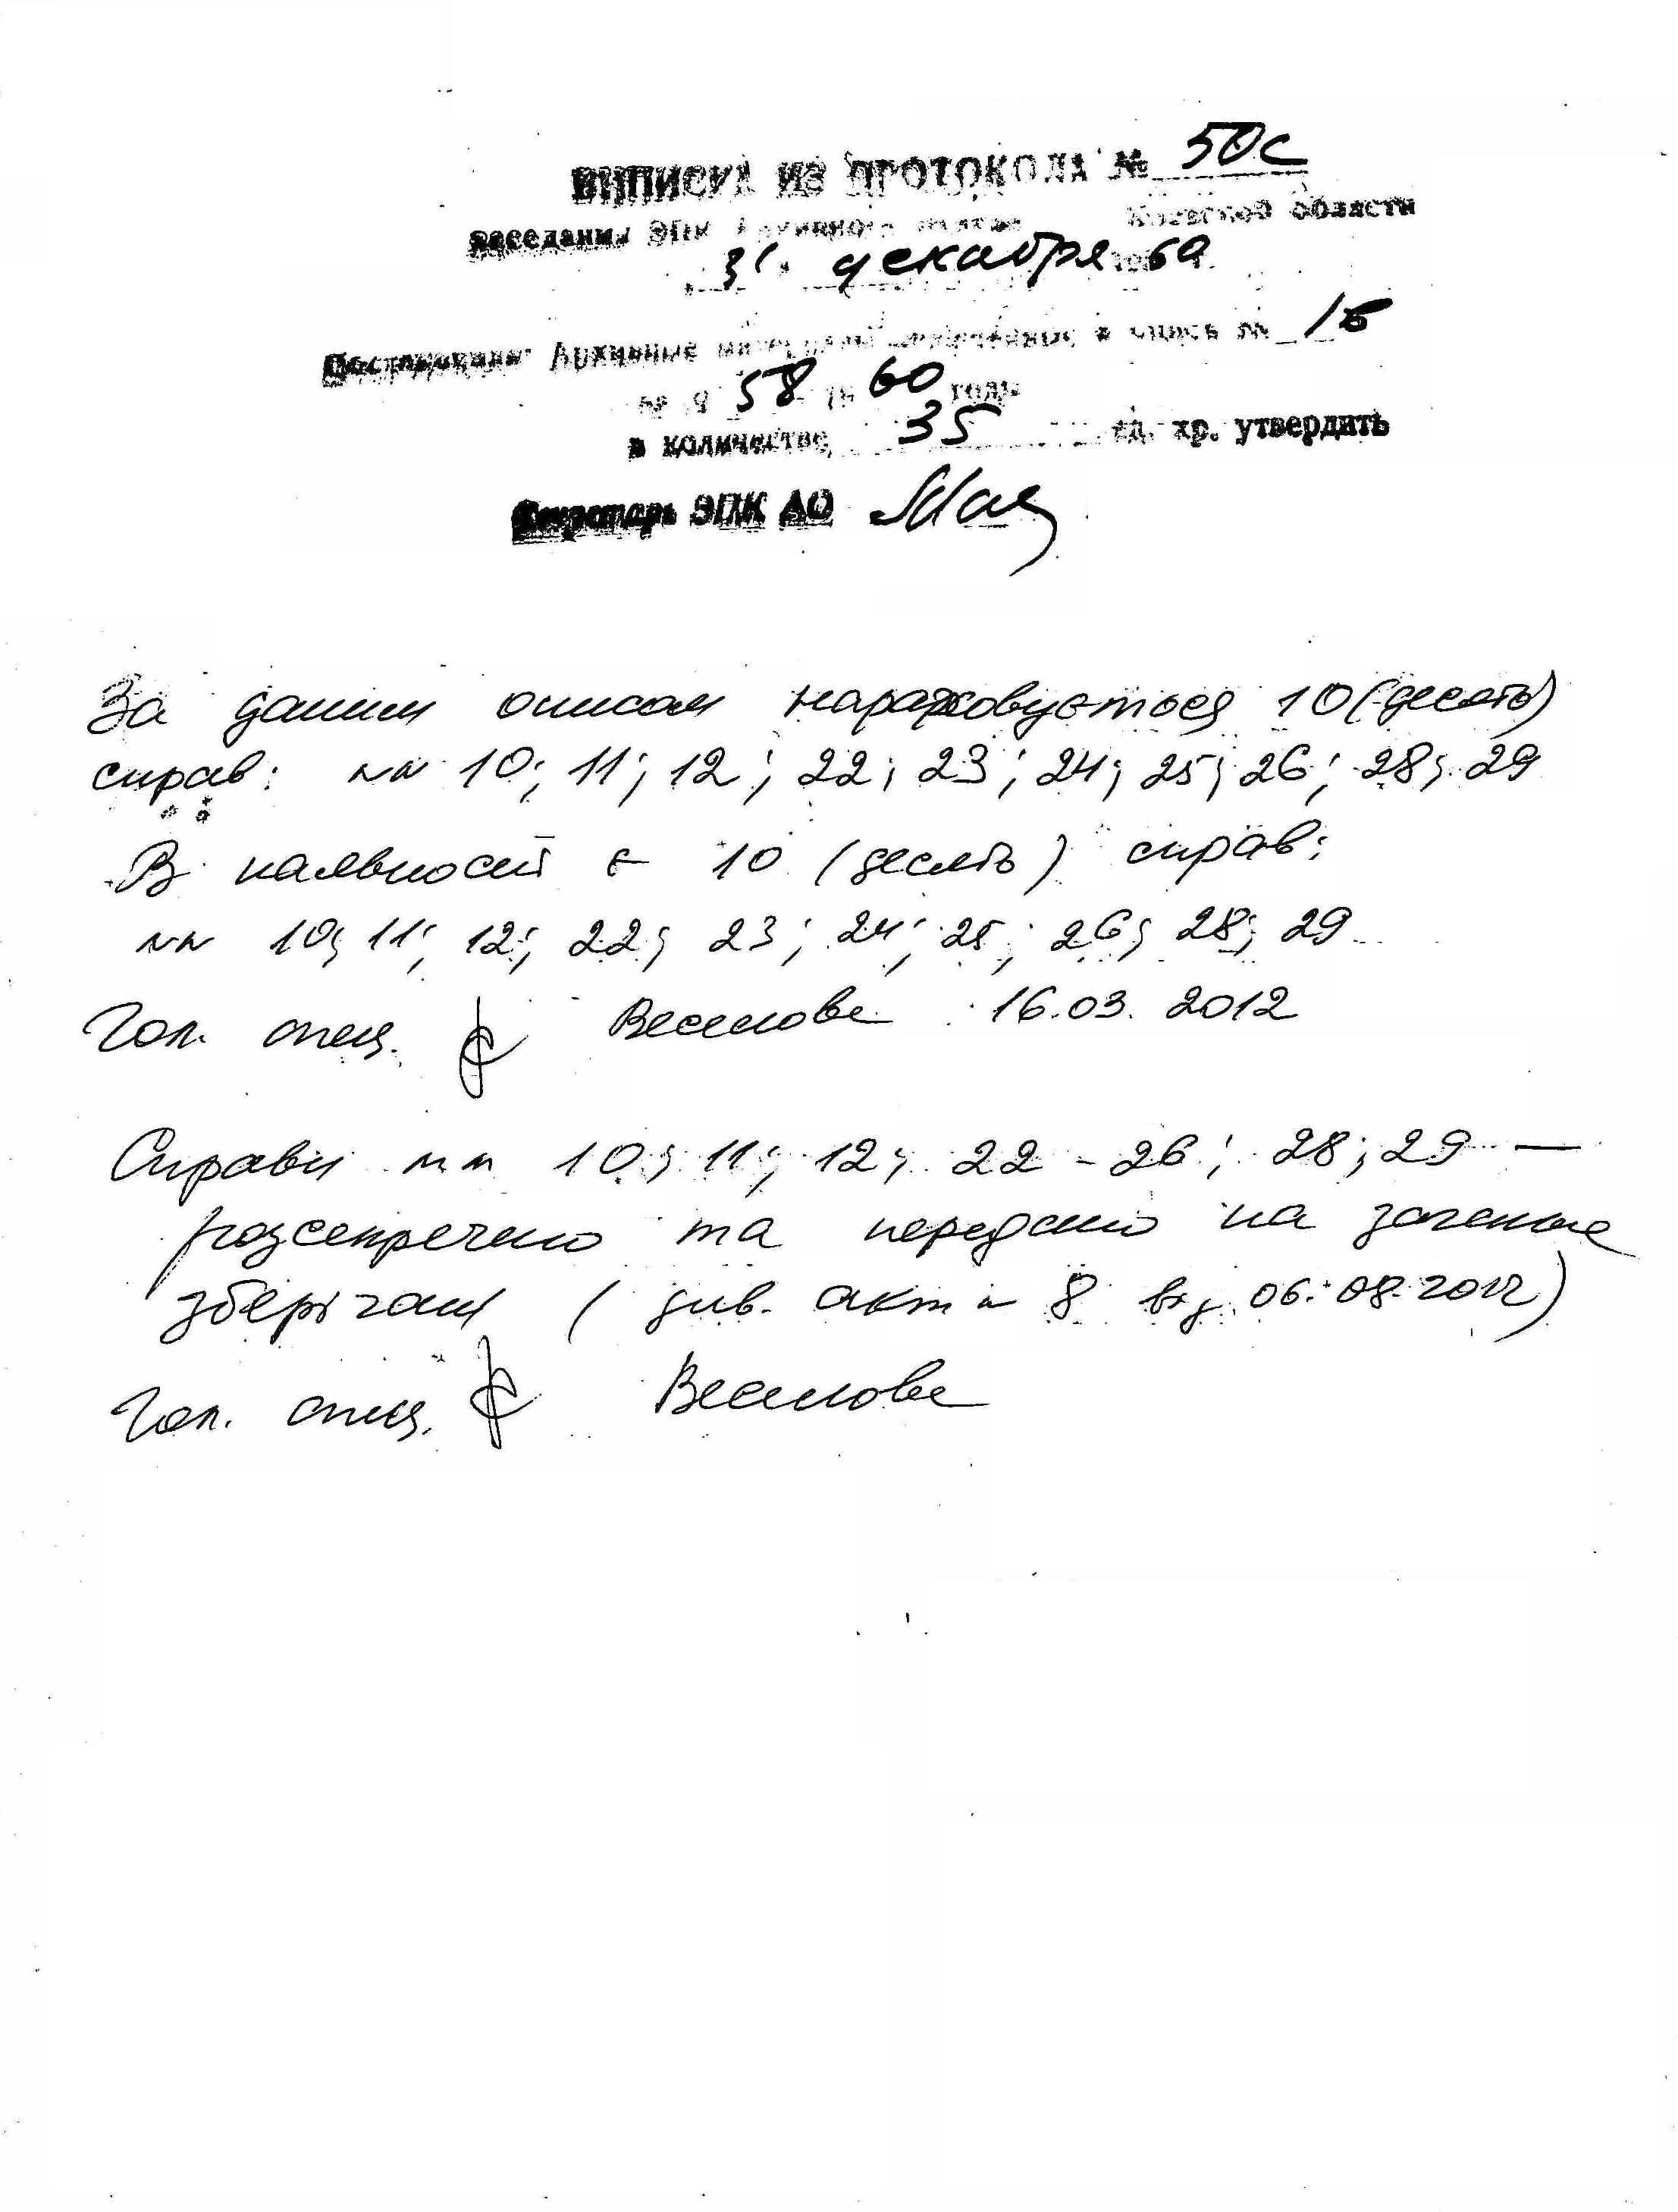 ВЫПИСКА ИЗ ПРОТОКОЛА № 50с
Заседания ЭПК Архивного отдела Киевской области
31 декабря 1969 г.
Постановили: Архивные материалы включенные в опись № 1б
за 1958 - 1960 годы
в количестве 35 ед. хр. утвердить
Секретарь ЭПК АО
За даним описом нараховується 10 (десять)
справ: №№ 10; 11; 12; 22; 23; 24; 25; 26; 28; 29
В наявності є 10 (десять) справ:
№№ 10; 11; 12; 22; 23; 24; 25; 26; 28; 29
Гол. спец. 16.03.2012
Справи №№ 10; 11; 12; 22 - 26; 28; 29 —
розсекречено та передано на загальне
зберігання (див. акт № 8 від 06.08.2012)
Гол. спец.